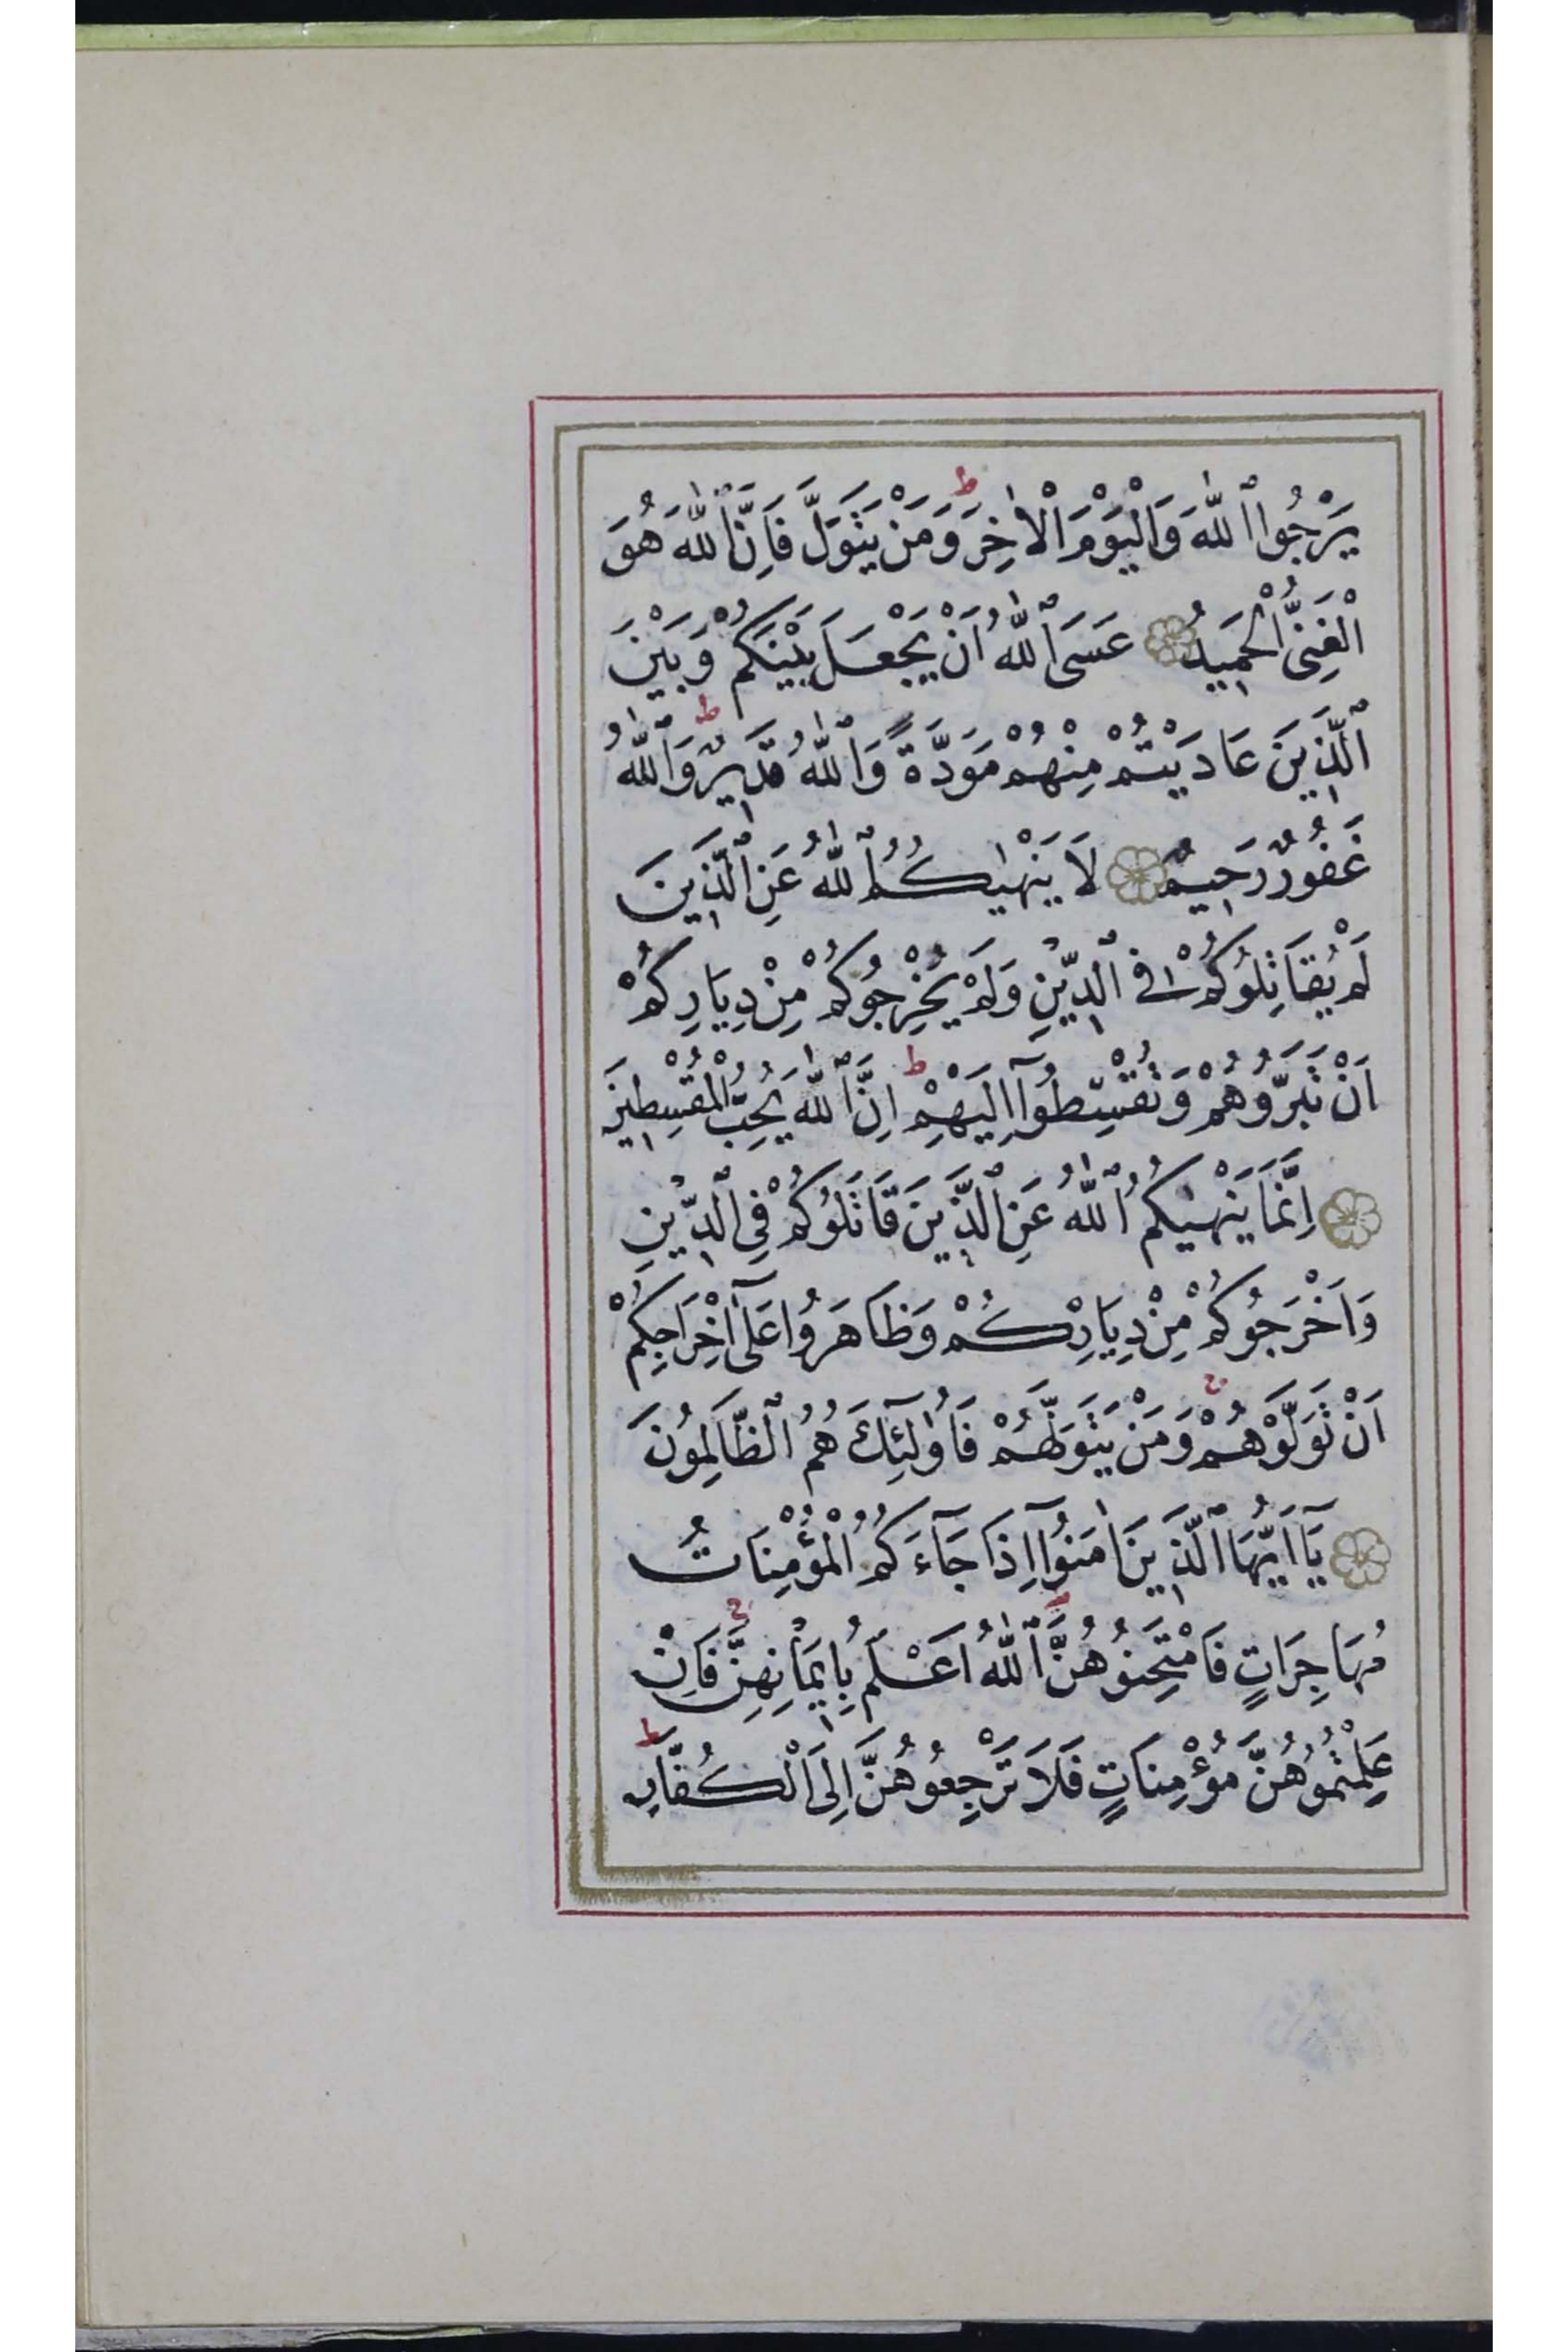 يَرْجُوا ٱللّٰهَ وَالْيَوْمَ الْاٰخِرَ ط وَمَنْ يَتَوَلَّ فَاِنَّ ٱللّٰهَ هُوَ
الْغَنِىُّ الْحَمِيدُ عَسَى ٱللّٰهُ اَنْ يَجْعَلَ بَيْنَكُمْ وَبَيْنَ
ٱلَّذِينَ عَادَيْتُمْ مِنْهُمْ مَوَدَّةً وَٱللّٰهُ قَدِيرٌ ط وَٱللّٰهُ
غَفُورٌ رَحِيمٌ لَا يَنْهٰيكُمُ ٱللّٰهُ عَنِ ٱلَّذِينَ
لَمْ يُقَاتِلُوكُمْ فِى ٱلدِّينِ وَلَمْ يُخْرِجُوكُمْ مِنْ دِيَارِكُمْ
اَنْ تَبَرُّوهُمْ وَتُقْسِطُوٓا اِلَيْهِمْ ط اِنَّ ٱللّٰهَ يُحِبُّ الْمُقْسِطِينَ
اِنَّمَا يَنْهٰيكُمُ ٱللّٰهُ عَنِ ٱلَّذِينَ قَاتَلُوكُمْ فِى ٱلدِّينِ
وَاَخْرَجُوكُمْ مِنْ دِيَارِكُمْ وَظَاهَرُوا عَلٰٓى اِخْرَاجِكُمْ
اَنْ تَوَلَّوْهُمْ ج وَمَنْ يَتَوَلَّهُمْ فَاُولٰٓئِكَ هُمُ ٱلظَّالِمُونَ
يَٓا اَيُّهَا ٱلَّذِينَ اٰمَنُوٓا اِذَا جَٓاءَكُمُ الْمُؤْمِنَاتُ
مُهَاجِرَاتٍ فَامْتَحِنُوهُنَّ ط ٱللّٰهُ اَعْلَمُ بِاِيمَانِهِنَّ ج فَاِنْ
عَلِمْتُمُوهُنَّ مُؤْمِنَاتٍ فَلَا تَرْجِعُوهُنَّ اِلَى الْكُفَّارِ ط